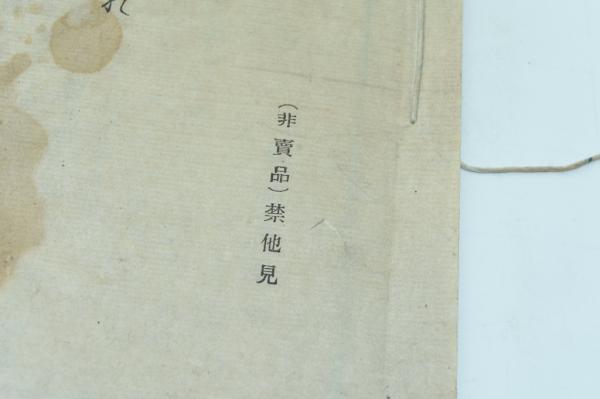 （非賣品）禁他見